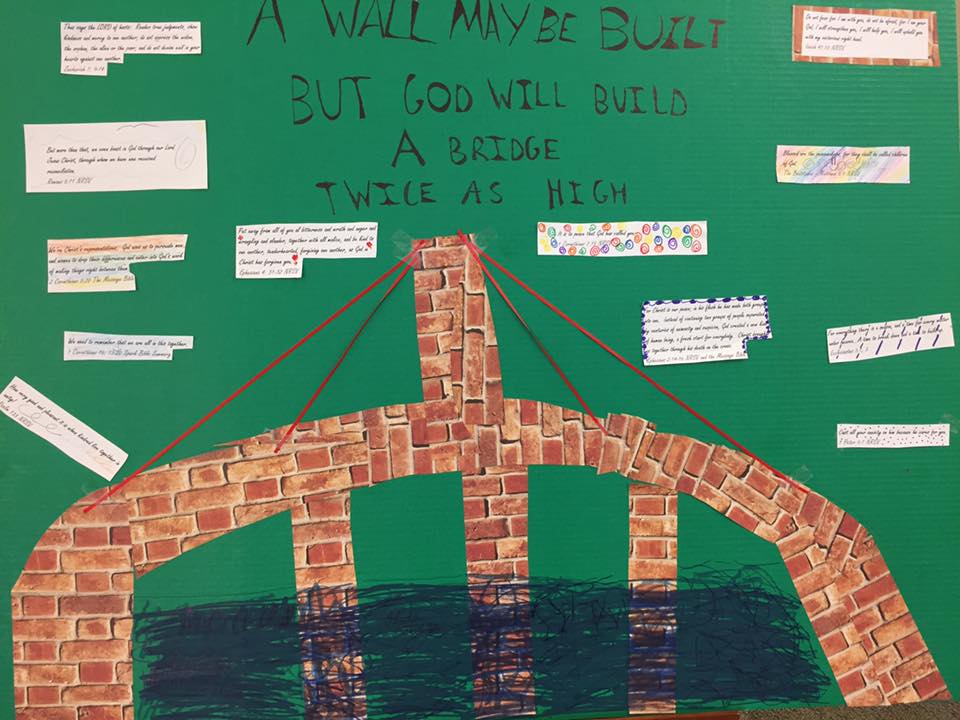 A WALL MAY BE BUILT
BUT GOD WILL BUILD
A BRIDGE
TWICE AS HIGH
Thus says the LORD of hosts: Render true judgments, show
kindness and mercy to one another; do not oppress the widow,
the orphan, the alien or the poor; and do not devise evil in your
hearts against one another.
Zechariah
Do not fear for I am with you, do not be afraid, for I am your
God; I will strengthen you, I will help you, I will uphold you
with my victorious right hand.
Isaiah 41:10 NRSV
But more than that, we even boast in God through our Lord
Jesus Christ, through whom we have now received
reconciliation.
Romans 5:11 NRSV
Blessed are the peacemakers, for they shall be called children
of God.
The Beatitudes Matthew 5:9 NRSV
We're Christ's representatives. God uses us to persuade men
and women to drop their differences and enter into God's work
of making things right between them.
2 Corinthians 5:20 The Message Bible
Put away from all of you all bitterness and wrath and anger and
wrangling and slander, together with all malice, and be kind to
one another, tenderhearted, forgiving one another, as God in
Christ has forgiven you.
Ephesians 4: 31-32 NRSV
It is to peace that God has called you.
1 Corinthians 7:15 NRSV
For Christ is our peace; in his flesh he has made both groups
into one. Instead of continuing two groups of people separated
by centuries of animosity and suspicion, God created a new kind
of human being, a fresh start for everybody. Christ brought
us together through his death on the cross.
Ephesians 2:14-16 NRSV and the Message Bible
We need to remember that we are all in this together.
1 Corinthians Spark Bible Summary
For everything there is a season, and a time for every matter
under heaven: A time to break down and a time to build up.
Ecclesiastes 3
How very good and pleasant it is when kindred live together in
unity!
Psalm 133 NRSV
Cast all your anxiety on him because he cares for you.
1 Peter 5:7 NRSV